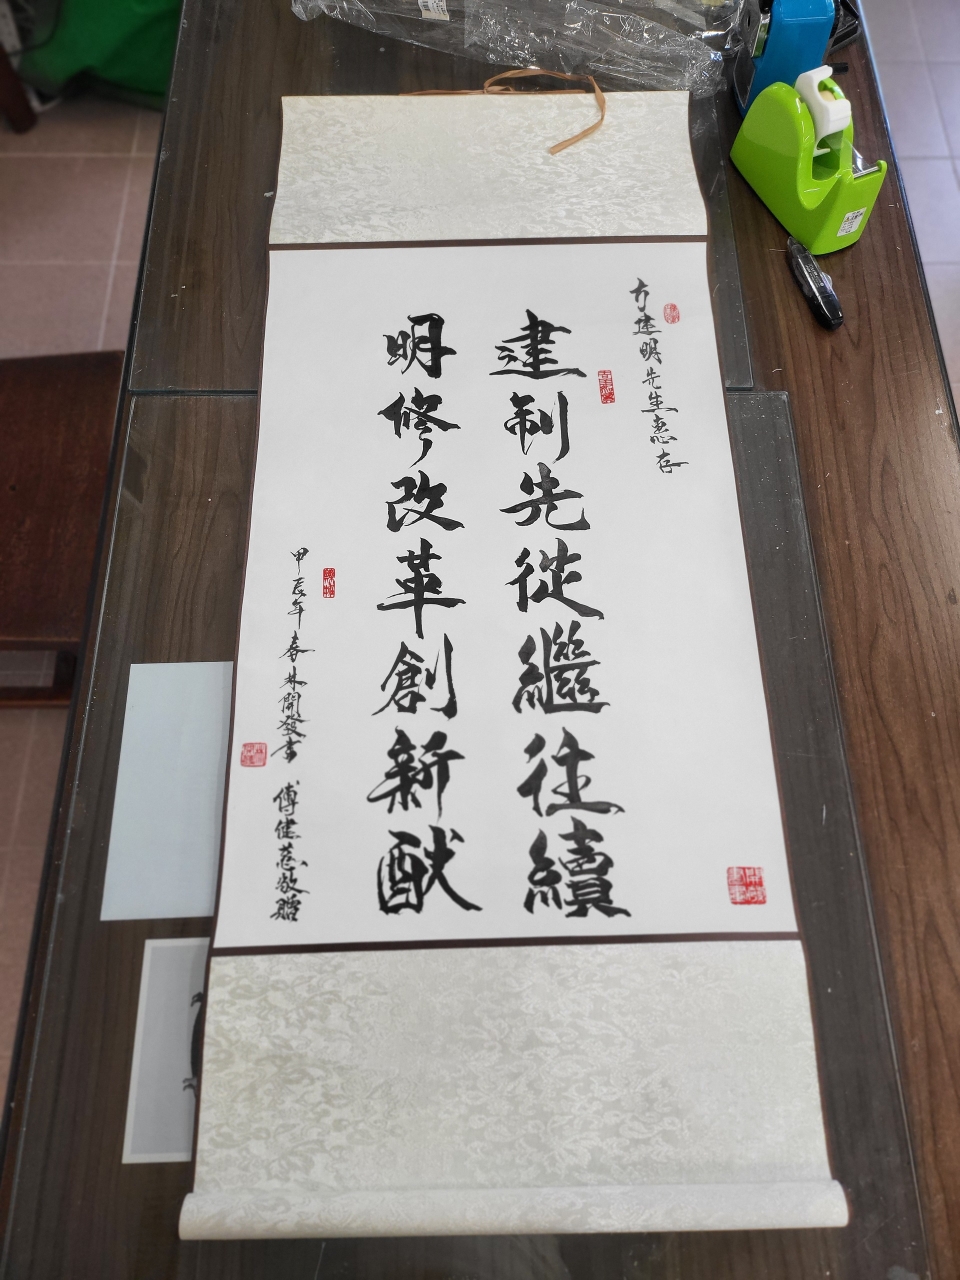 方建明先生惠存
建制先從繼往續
明修改革創新猷
甲辰年 春 林開發書 傅健慈敬贈